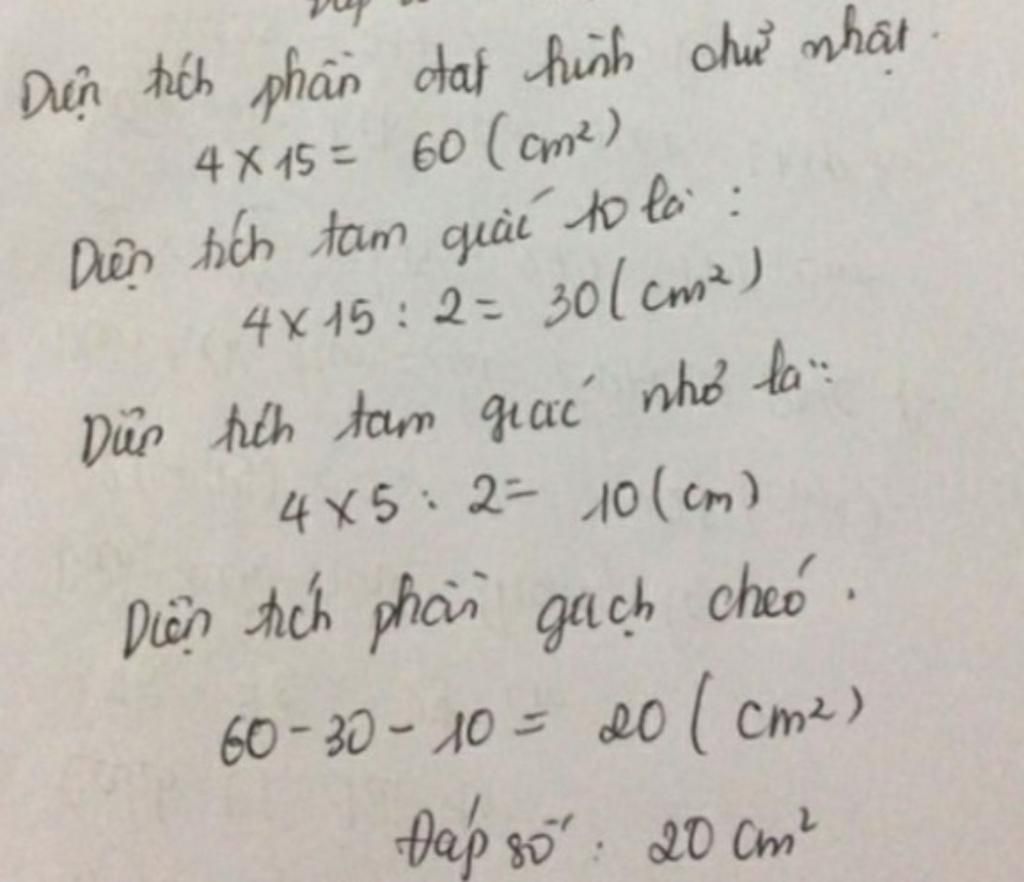 Đáp
Diện tích phần đat hình chữ nhật.
4 x 15 = 60 (cm²)
Diện tích tam giác to là :
4 x 15 : 2 = 30 (cm²)
Diện tích tam giác nhỏ là :
4 x 5 : 2 = 10 (cm)
Diện tích phần gạch chéo .
60 - 30 - 10 = 20 ( cm²)
Đáp số : 20 cm²